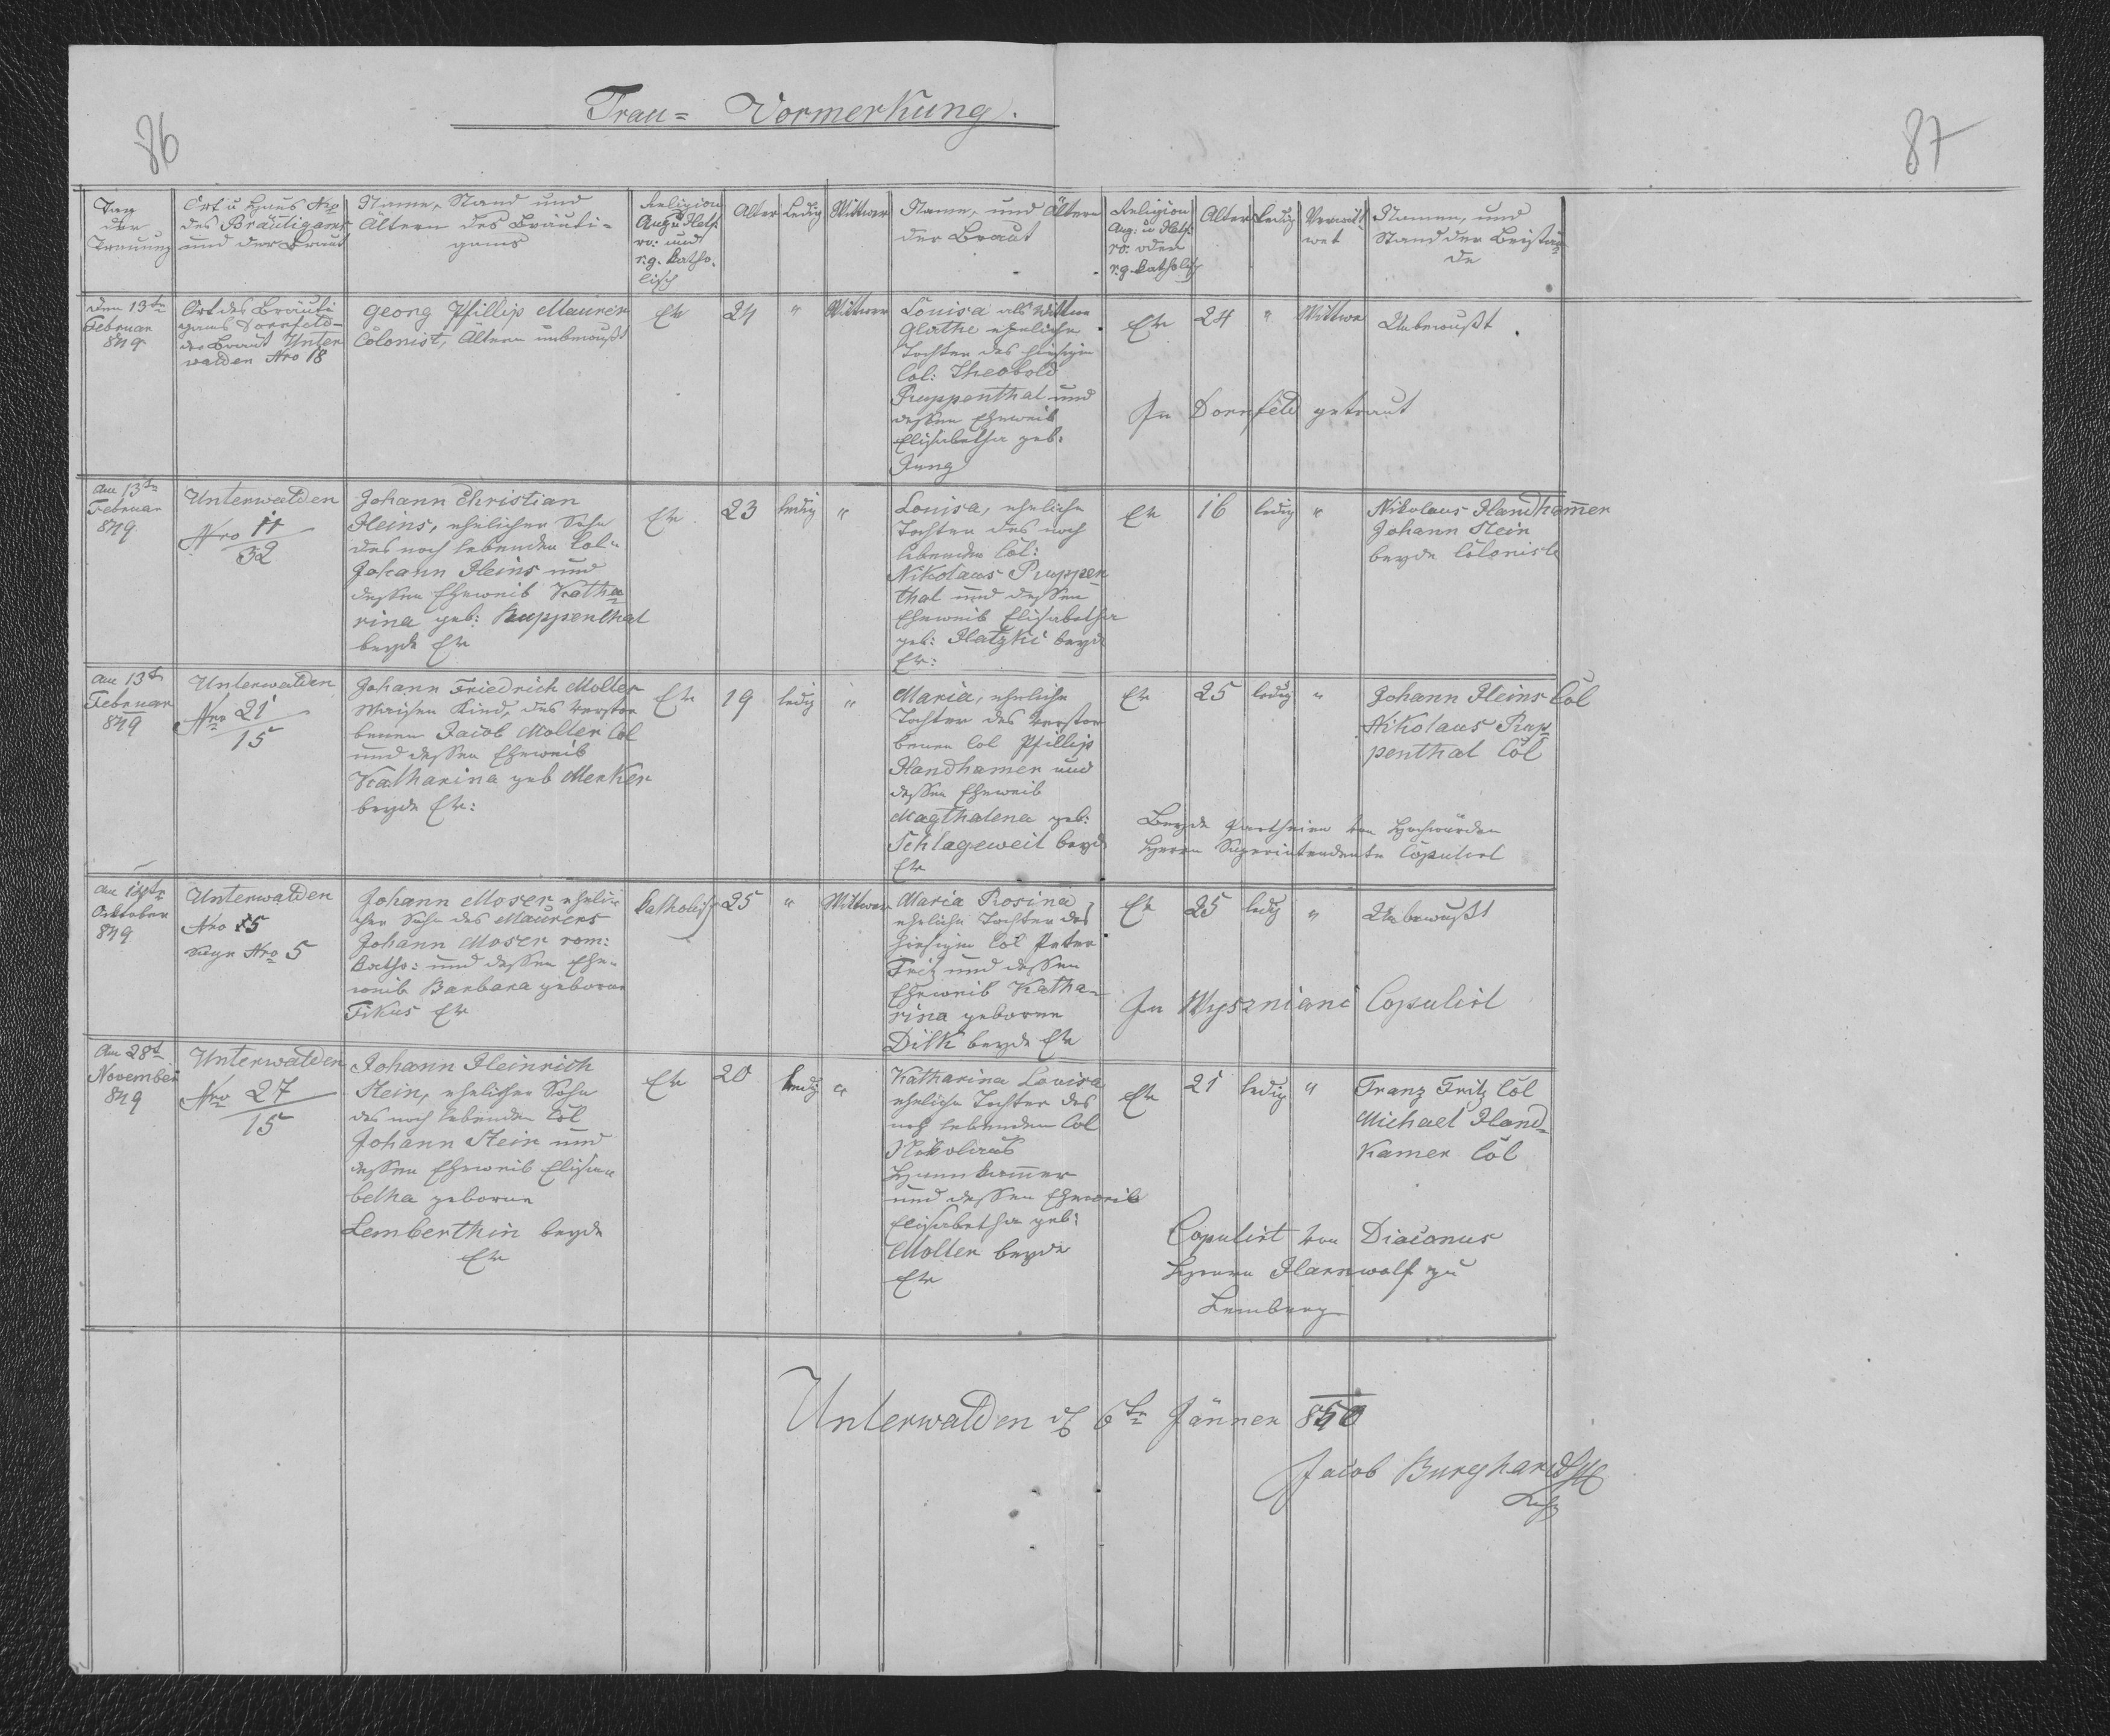 Trau= Vormerkung.
86
87
Tag
der
Trauung
Ort u Haus Nro
des Bräutigams
und der Braut
Name, Stand und
Ältern des Bräuti-
gams
Religion
Aug: u Helf:
ro: und
r.g. katho-
lisch
Alter
Ledig
Wittwer
Name, und Ältern
der Braut
Religion
Aug: u Helf:
ro. oder
r.g. katholisch
Alter
Ledig
Verwitt
wet
Namen, und
Stand der Beistän-
de
Den 13tn
Februar
849
Ort des Bräuti
gams Dornfeld-
der Braut Unter
walden Nro 18
Georg Pfillip Maurer
Colonist, Ältern unbewußt
Ev
24
"
Wittwer
Louisa als Wittwe
Glathe eheliche
Tochter des hiesigen
Col: Theobold
Ruppenthal und
dessen Eheweib
Elisabetha geb:
Jung
Ev
24
"
Wittwe
Unbewußt.
In Dornfeld getraut
Am 13tn
Februar
849
Unterwalden
Nro 11
32
Johann Christian
Heins, ehelicher Sohn
des noch lebenden Col-
Johann Heins und
dessen Eheweib Katha
rina geb: Ruppenthal
beyde Ev
Ev
23
ledig
"
Louisa, eheliche
Tochter des noch
lebenden Col:
Nikolaus Ruppen
thal und dessen
Eheweib Elisabetha
geb: Hatzki beyde
Ev:
Ev
16
ledig
"
Nikolaus Handham̄er
Johann Stein
beyde Coloniste
Am 13tn
Februar
849
Unterwalden
Nro 21
15
Johann Friedrich Molter
Waisen Kind, des verstor
benen Jacob Molter Col
und dessen Eheweib
Katharina geb Merker
beyde Ev:
Ev
19
ledig
"
Maria, eheliche
Tochter des verstor
benen Col Pfillip
Handhamer und
dessen Eheweib
Magthalena geb:
Schlageweit beyde
Ev
Ev
25
ledig
"
Johann Heins Col
Nikolaus Rup
penthal Col
Beyde Partheien von Hochwürden
Herrn Superintendenten Copulirt
Am 14tn
Oktober
849
Unterwalden
Nro 55
Nro 5
Johann Moser eheli-
cher Sohn des Maurers
Johann Moser rom:
katho: und dessen Ehe-
weib Barbara geborne
Fikus Ev
katholisch
25
"
Wittwer
Maria Rosina,
eheliche Tochter des
hiesigen Col Peter
Fritz und dessen
Eheweib Katha-
rina geborne
Dilk beyde Ev
Ev
25
ledig
"
Unbewußt
In Wyszniani Copulirt
Am 28t
November
849
Unterwalden
Nro 27
15
Johann Heinrich
Stein, ehelicher Sohn
des noch lebenden Col
Johann Stein und
dessen Eheweib Elisa
betha geborne
Lemberthin beyde
Ev
Ev
20
ledig
"
Katharina Louisa
eheliche Tochter des
noch lebenden Col
Nikolaus
Hannkam̄er
und dessen Eheweib
Elisabetha geb:
Molter beyde
Ev
Ev
21
ledig
"
Franz Fritz Col
Michael Hand-
kamer Col
Copulirt von Diaconus
Herrn Harnwolf zu
Lemberg
Unterwalden d 6tn Jänner 850
Jacob Burghardt